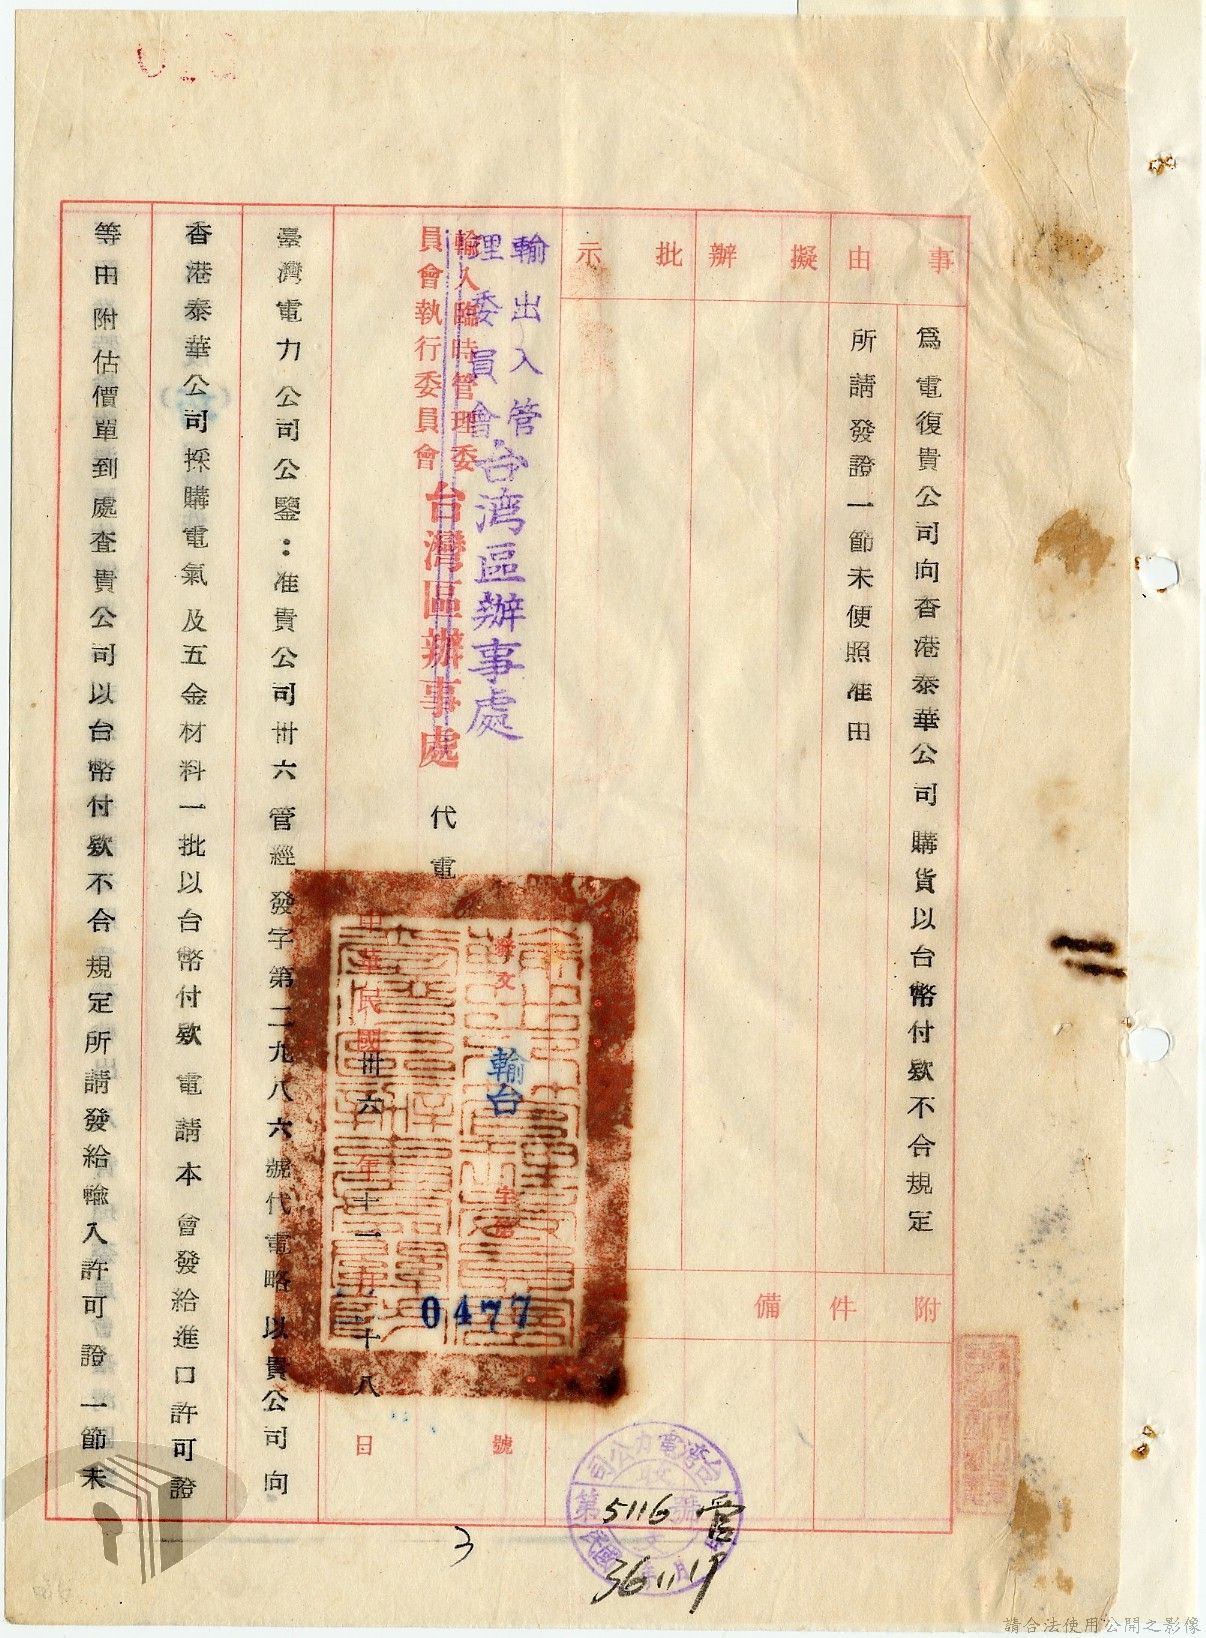 事由
擬辦
批示
為電復貴公司向香港泰華公司購貨以台幣付欵不合規定
所請發證一節未便照准由
附件
備
輸出入管
理委員會台湾區辦事處
輸入臨時管理委
員會執行委員會台灣區辦事處
代電
發文
輸台
字第
0477
號
中華民國卅六年十一月十八日
臺灣電力公司公鑒：准貴公司卅六管經發字第二九八六號代電略以貴公司向
香港泰華公司採購電氣及五金材料一批以台幣付欵電請本會發給進口許可證
等由附估價單到處查貴公司以台幣付欵不合規定所請發給輸入許可證一節未
台湾電力公司
收文
第5116號
民國36年11月19
3
請合法使用公開之影像